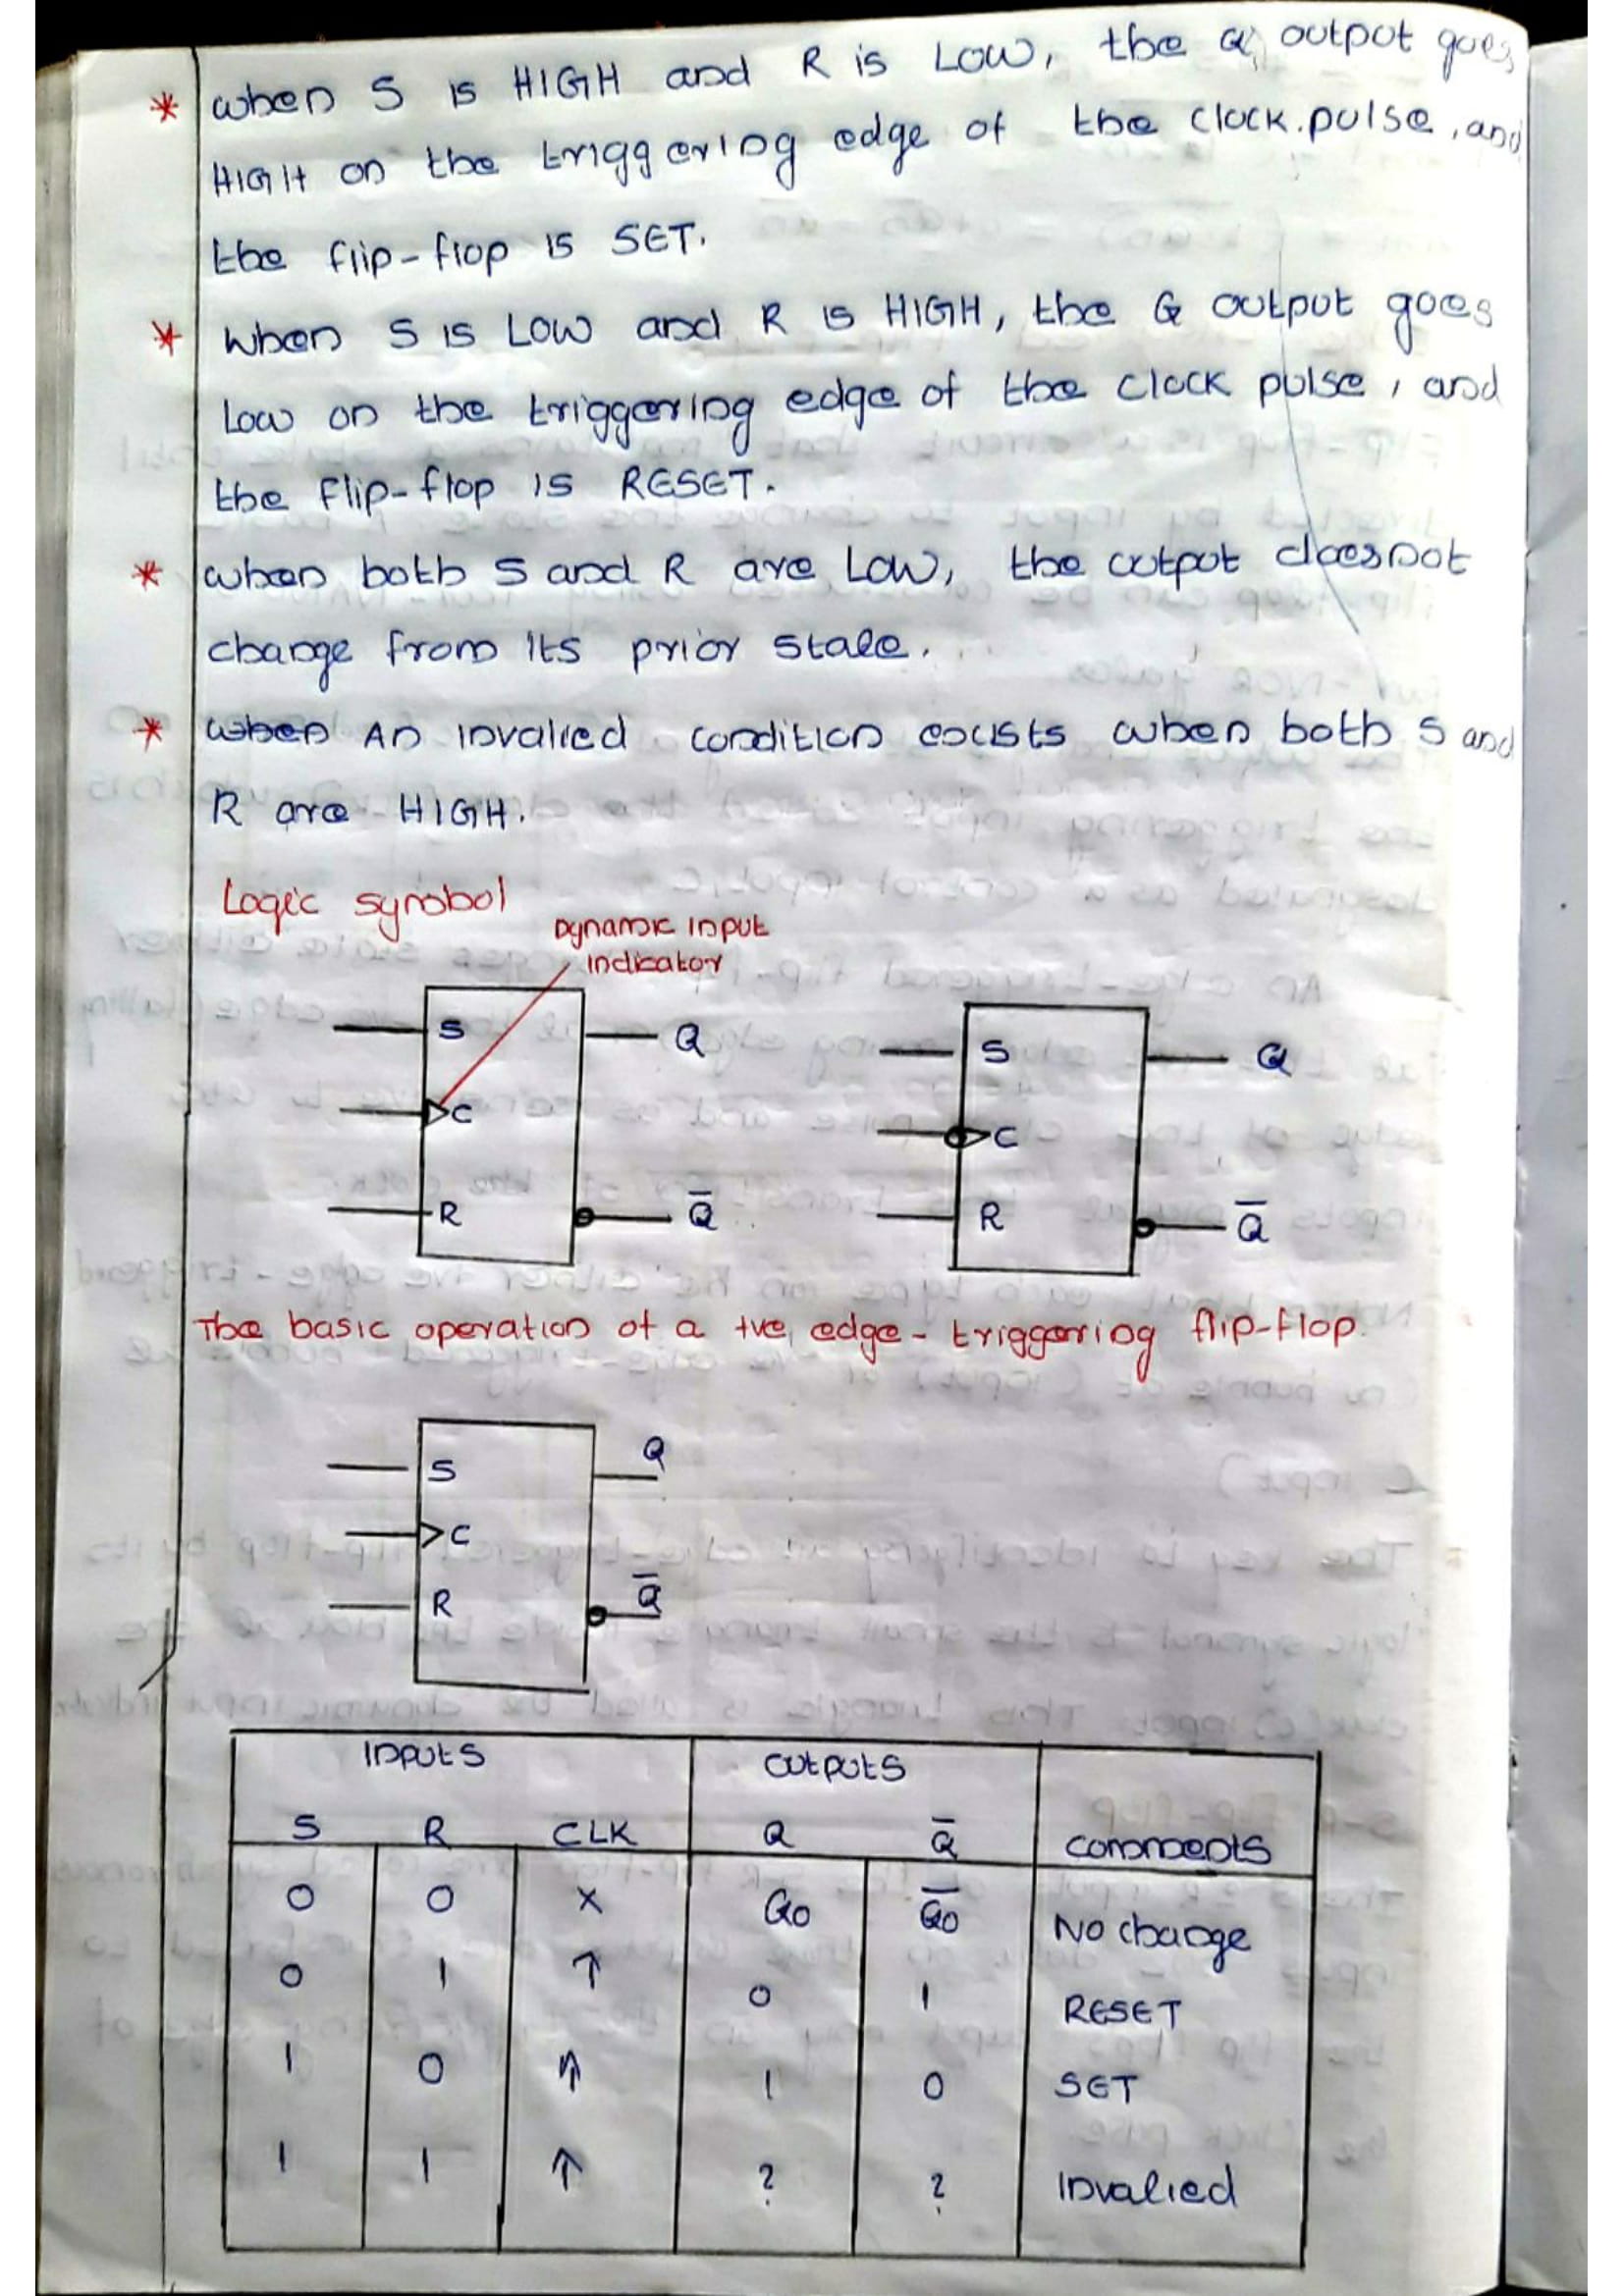 * when S is HIGH and R is LOW, the Q output goes
HIGH on the triggering edge of the clock.pulse, and
the flip-flop is SET.
* When S is LOW and R is HIGH, the Q output goes
Low on the triggering edge of the clock pulse, and
the flip-flop is RESET.
* when both S and R are Low, the output doesnot
change from its prior state.
* when An invalied condition exists when both S and
R are HIGH.
Logic symbol
Dynamic input
indicator
S Q
C
R Q̅
S Q
C
R Q̅
The basic operation of a +ve edge-triggering flip-flop.
S Q
C
R Q̅
Inputs Outputs
S R CLK Q Q̅ Comments
0 0 × Q0 Q̅0 No change
0 1 ↑ 0 1 RESET
1 0 ↑ 1 0 SET
1 1 ↑ ? ? Invalied